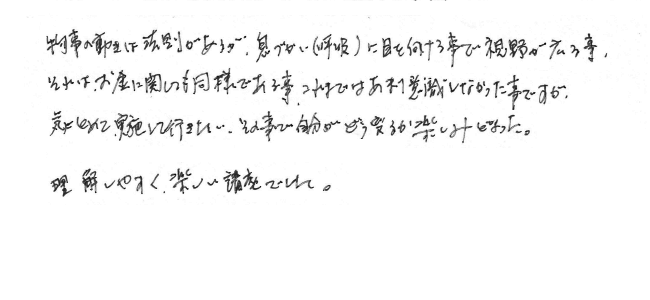 物事の節目には法則があるが、息づかい(呼吸)に目を向ける事で視野が広る事、
それは、お産に関しても同様である事、これまではあまり意識しなかった事ですが、
気にとめて実施して行きたい。その事で自分がどう変るか楽しみになった。
理解しやすく、楽しい講座でした。